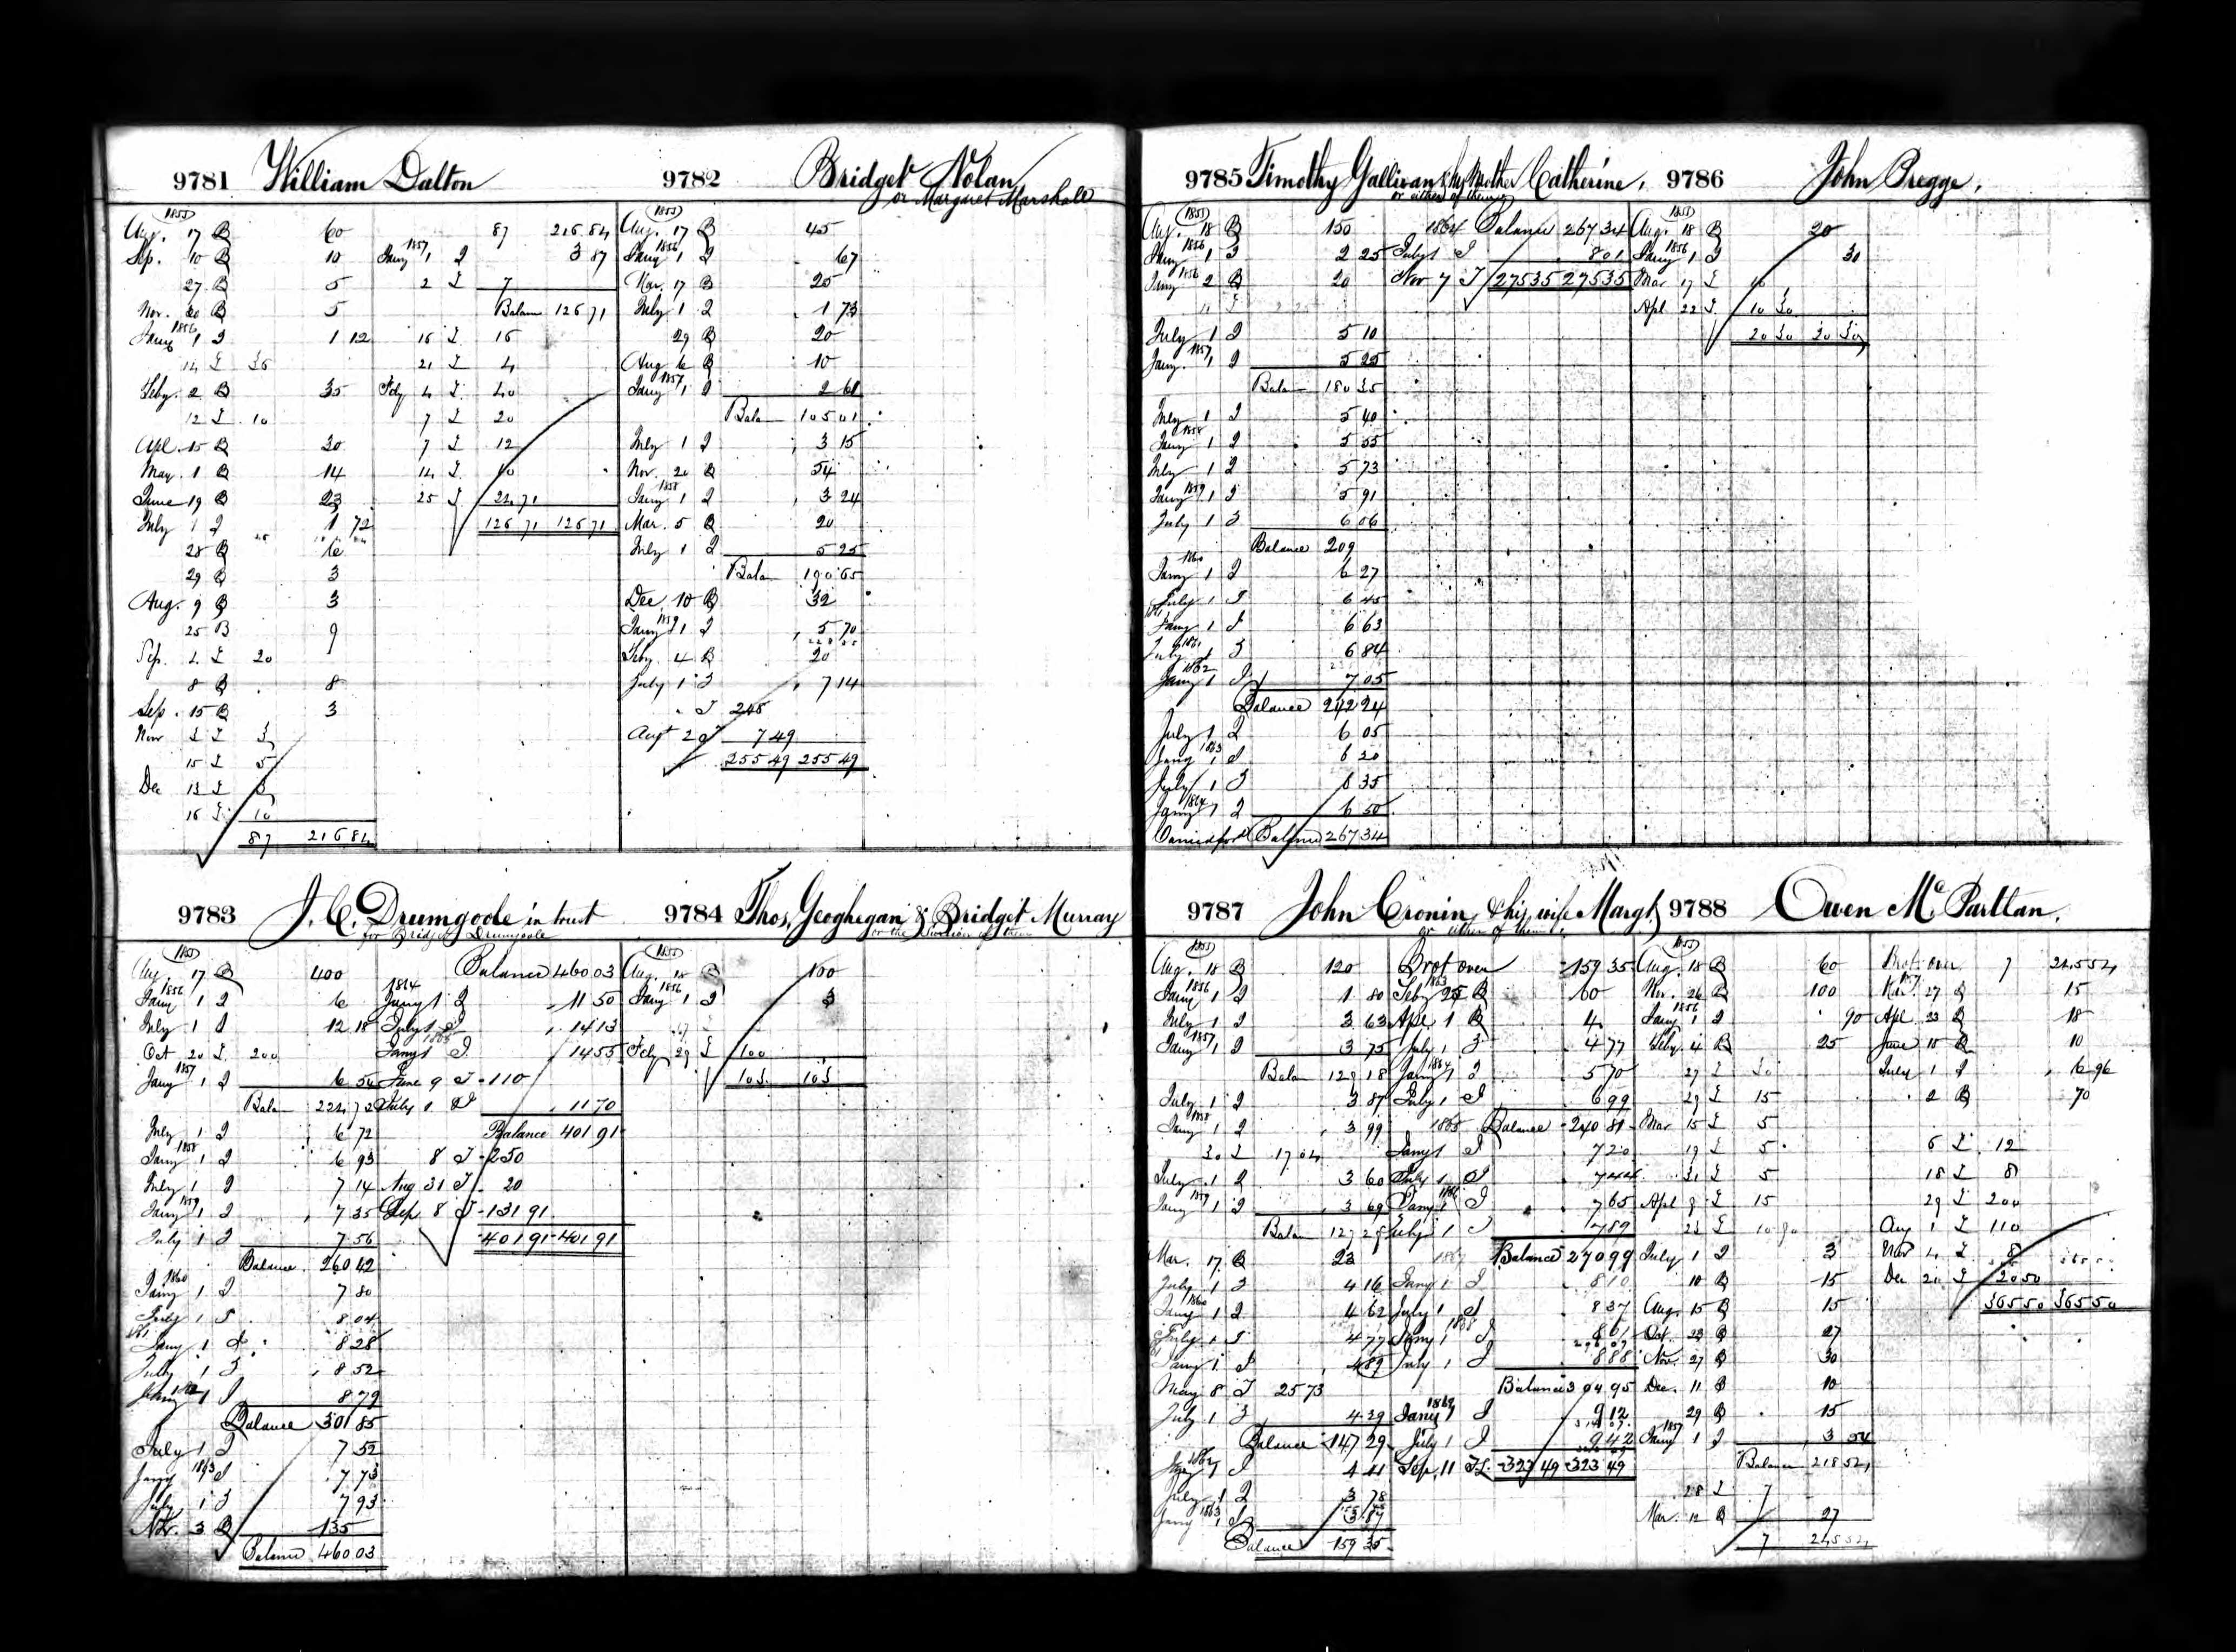 9781 William Dalton
1855
Aug. 17 B 60
Sep. 10 B 10
27 B 5
Nov. 20 B 5
1856
Jany 1 I 1 12
14 I 36
Feby. 2 B 35
12 I 10
Apl. 15 B 30
May. 1 B 14
June 19 B 23
July 1 I 1 72
28 B 6
29 B 3
Aug. 9 B 3
25 B 9
Sep. 2 I 20
8 B 8
Sep. 15 B 3
Nov 3 I 3
15 I 5
Dec 13 I 3
16 I 10
87 216 84
87 216 84
1857
Jany 1 I 3 87
2 I 7
Balan 126 71
16 I 16
21 I 4
Feby 4 I 40
7 I 20
7 I 12
14 I 10
25 I 24 71
126 71 126 71
9782 Bridget Nolan
or Margaret Marshall
1855
Aug. 17 B 45
1856
Jany 1 I 67
Mar. 17 B 25
July 1 I 1 73
29 B 20
Aug 6 B 10
1857
Jany 1 I 2 61
Balan 105 01
July 1 I 3 15
Nov. 20 B 54
1858
Jany 1 I 3 24
Mar. 5 B 20
July 1 I 5 25
Balan 190 65
Dec. 10 B 32
1859
Jany 1 I 5 70
Feby. 4 B 20
July 1 I 7 14
I 248
Augt 2 I 7 49
255 49 255 49
9783 J. C. Drumgoole in trust
for Bridget Drumgoole
1855
Aug. 17 B 400
1856
Jany 1 I 6
July 1 I 12 18
Oct 20 I 200
1857
Jany 1 I 6 54
Balan 224 72
July 1 I 6 72
1858
Jany 1 I 6 93
July 1 I 7 14
1859
Jany 1 I 7 35
July 1 I 7 56
Balance 260 42
1860
Jany 1 I 7 80
July 1 I 8 04
1861
Jany 1 I 8 28
July 1 I 8 52
1862
Jany 1 I 8 79
Balance 301 85
July 1 I 7 52
Jany 1863 I 7 73
July 1 I 7 93
Nov. 3 B 135
Balance 460 03
Balance 460 03
1864
Jany 1 I 11 50
July 1 I 14 13
1865
Jany 1 I 14 55
June 9 I 110
July 1 I 11 70
Balance 401 91
8 I 250
Aug 31 I 20
Sep 8 I 131 91
401 91 401 91
9784 Thos. Geoghegan & Bridget Murray
or the Survivor of them
1855
Aug. 18 B 100
1856
Jany 1 I 3
Feby 29 I 100
103 103
9785 Timothy Gallivan & his Mother Catherine,
or either of them
1855
Aug. 18 B 150
1856
Jany 1 I 2 25
1856
Jany 2 B 20
July 1 I 5 10
1857
Jany. 1 I 5 25
Balan 180 35
July 1 I 5 40
1858
Jany 1 I 5 55
July 1 I 5 73
1859
Jany 1 I 5 91
July 1 I 6 06
Balance 209
1860
Jany 1 I 6 27
July 1 I 6 45
1861
Jany 1 I 6 63
July 1 I 6 84
1862
Jany 1 I 7 05
Balance 242 24
July 1 I 6 05
1863
Jany 1 I 6 20
July 1 I 6 35
1864
Jany 1 I 6 50
Carried ford Balance 267 34
1864 Balance 267 34
July 1 I 8 01
Nov 7 I 275 35 275 35
9786 John Pregge,
1855
Aug. 18 B 20
1856
Jany 1 I 30
Mar 17 I 10
Apl 22 I 10 30
20 30 20 30
9787 John Cronin, & his wife Margt,
or either of them,
1855
Aug. 18 B 120
1856
Jany 1 I 1 80
July 1 I 3 63
1857
Jany 1 I 3 75
Balan 129 18
July 1 I 3 87
1858
Jany 1 I 3 99
30 I 17 04
July 1 I 3 60
1859
Jany 1 I 3 69
Balan 127 29
Mar. 17 B 23
July 1 I 4 16
1860
Jany 1 I 4 62
July 1 I 4 77
1861
Jany 1 I 4 89
May 8 I 25 73
July 1 I 4 29
Balance 147 29
1862
Jany 1 I 4 41
July 1 I 3 78
1863
Jany 1 I 3 87
Balance 159 35
Brot over 159 35
1863
Feby 25 B 60
Apl. 1 B 4
July 1 I 4 77
1864
Jany 1 I 5 70
July 1 I 6 99
1865 Balance 240 81
Jany 1 I 7 20
July 1 I 7 44
1866
Jany 1 I 7 65
July 1 I 7 89
1867 Balance 270 99
Jany 1 I 8 10
July 1 I 8 37
1868
Jany 1 I 8 61
July 1 I 8 88
Balance 304 95
1869
Jany 1 I 9 12
July 1 I 9 42
Sep. 11 I 323 49 323 49
9788 Owen Mc Partlan,
1855
Aug. 18 B 60
Nov. 26 B 100
1856
Jany 1 I 90
Feby. 4 B 25
27 I 30
29 I 15
Mar 15 I 5
19 I 5
31 I 5
Apl 8 I 15
23 I 10 90
July 1 I 3
10 B 15
Aug. 15 B 15
Oct. 23 B 27
Nov. 27 B 30
Dec. 11 B 10
29 B 15
1857
Jany 1 I 3 54
Balance 218 54
28 I 7
Mar. 12 B 27
7 245 54
Brot over 7 245 54
1857
Mar. 27 B 15
Apl 23 B 18
June 15 B 10
July 1 I 6 96
2 B 70
6 I 12
18 I 8
29 I 200
Aug 1 I 110
Nov 4 I 8
Dec 21 I 20 50
365 50 365 50